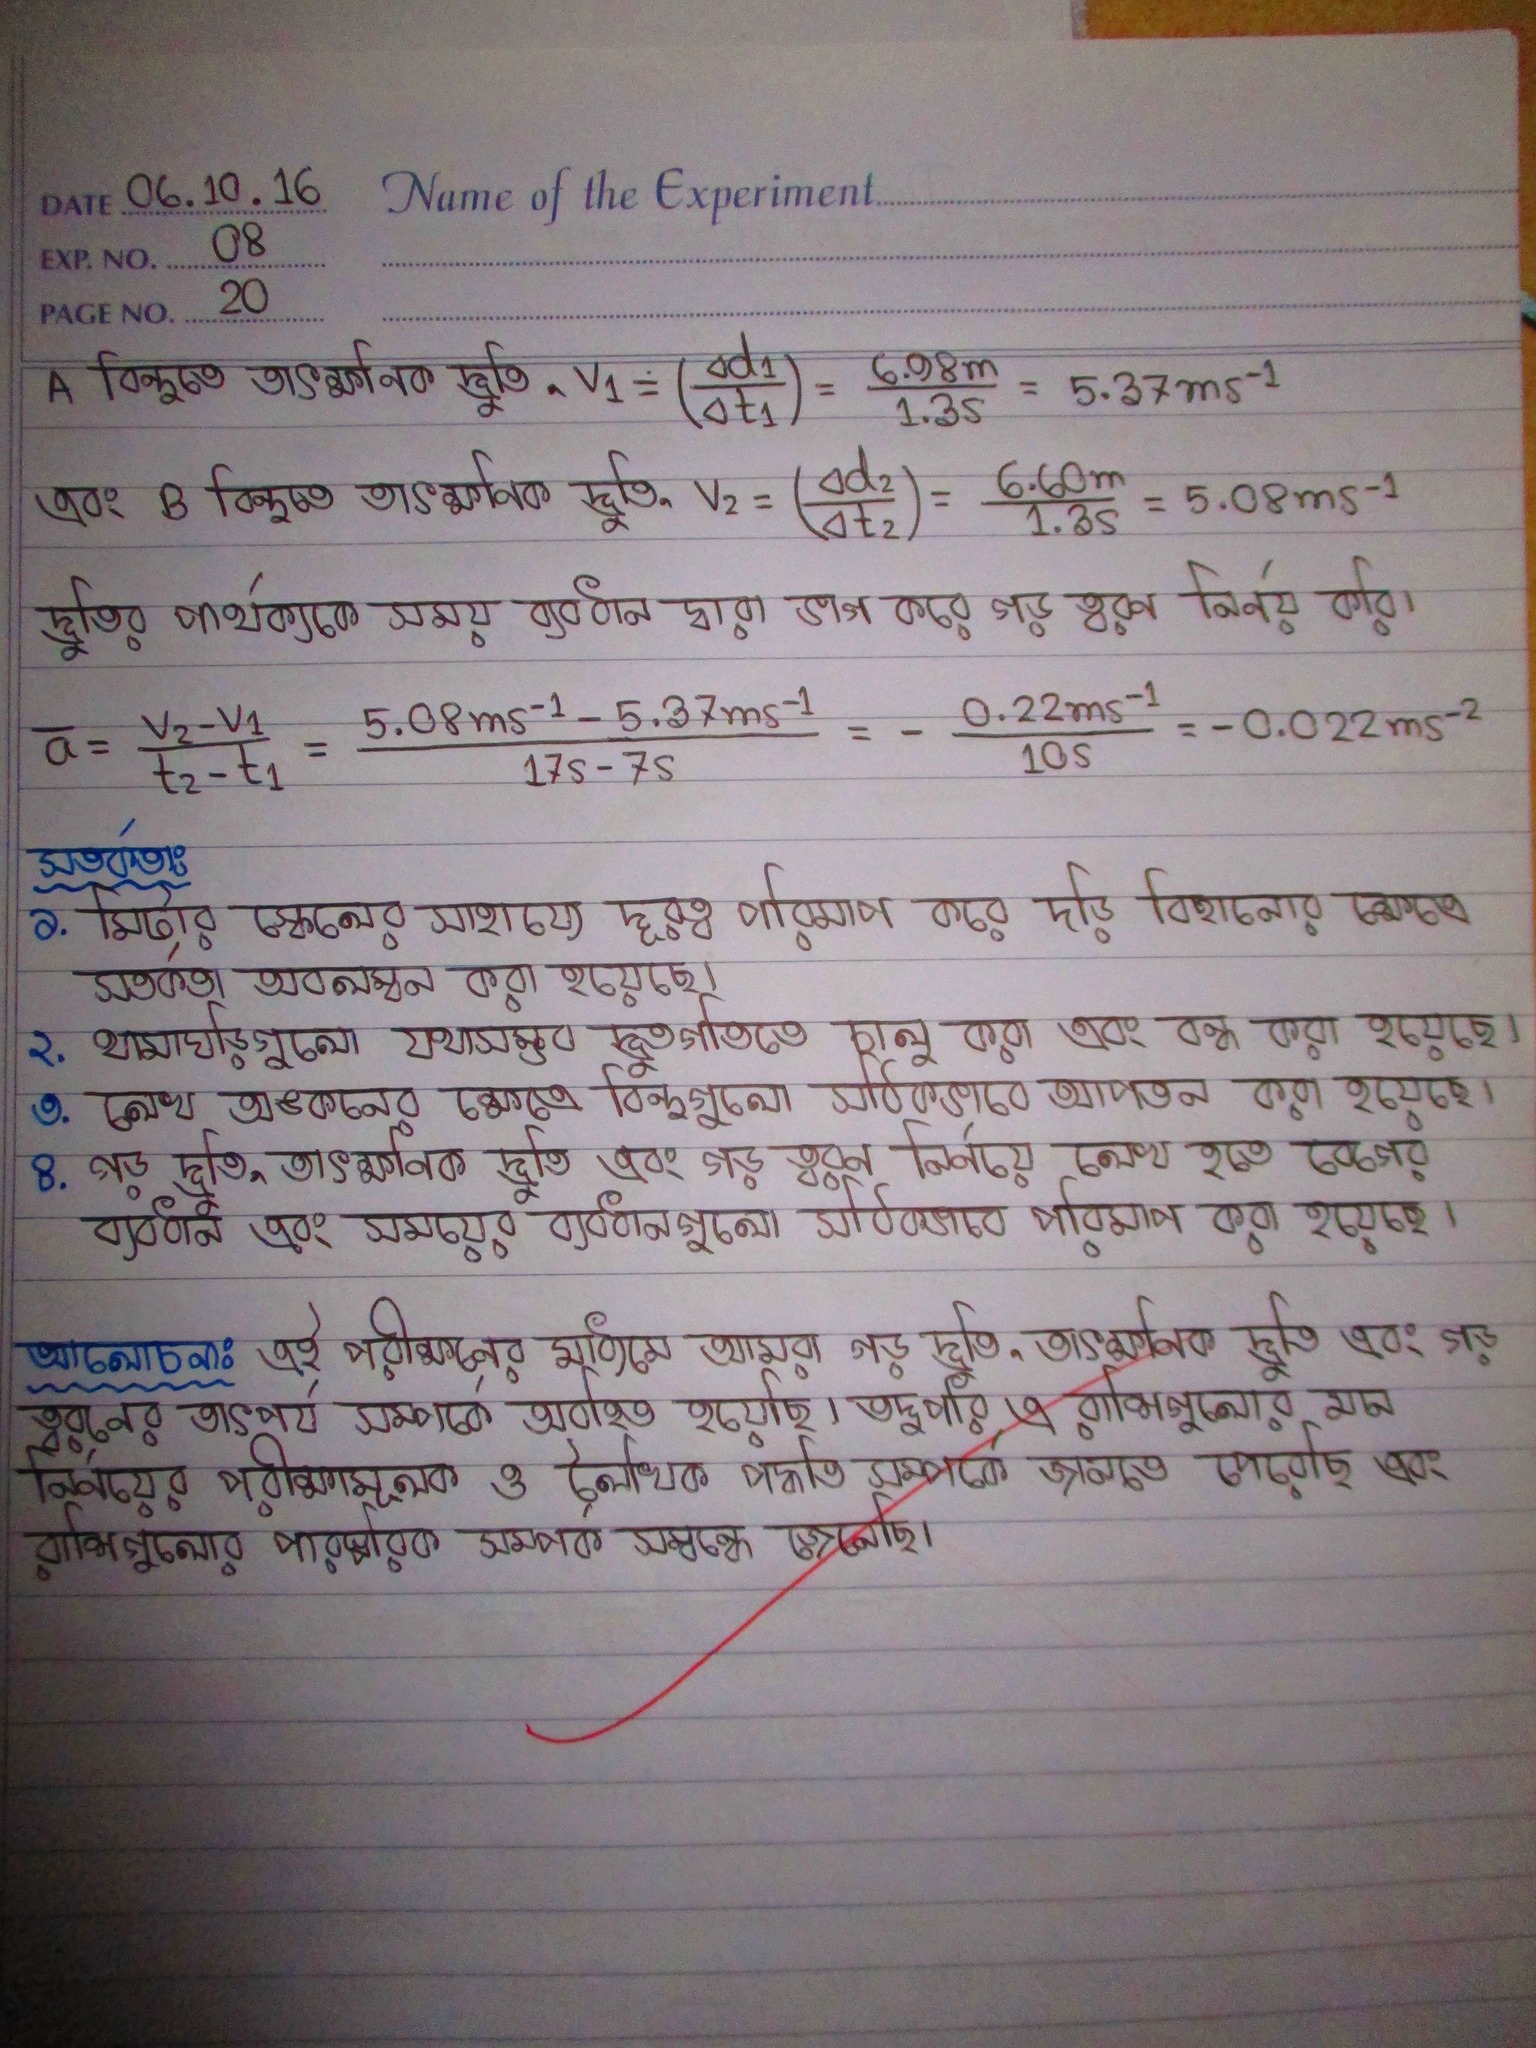 DATE 06.10.16 Name of the Experiment
EXP. NO. 08
PAGE NO. 20
A বিন্দুতে তাৎক্ষনিক দ্রুতি, V₁ = (Δd₁/Δt₁) = 6.98m/1.3s = 5.37ms⁻¹
এবং B বিন্দুতে তাৎক্ষনিক দ্রুতি, V₂ = (Δd₂/Δt₂) = 6.60m/1.3s = 5.08ms⁻¹
দ্রুতির পার্থক্যকে সময় ব্যবধান দ্বারা ভাগ করে গড় ত্বরণ নির্ণয় করি।
a̅ = (V₂-V₁)/(t₂-t₁) = (5.08ms⁻¹ - 5.37ms⁻¹)/(17s-7s) = - 0.22ms⁻¹/10s = -0.022ms⁻²
সতর্কতাঃ
১. মিটার স্কেলের সাহায্যে দূরত্ব পরিমাপ করে দড়ি বিছানোর ক্ষেত্রে
সতর্কতা অবলম্বন করা হয়েছে।
২. থামাঘড়িগুলো যথাসম্ভব দ্রুতগতিতে চালু করা এবং বন্ধ করা হয়েছে।
৩. লেখ অঙকনের ক্ষেত্রে বিন্দুগুলো সঠিকভাবে আপতন করা হয়েছে।
৪. গড় দ্রুতি, তাৎক্ষনিক দ্রুতি এবং গড় ত্বরন নির্নয়ে লেখ হতে বেগের
ব্যবধান এবং সময়ের ব্যবধানগুলো সঠিকভাবে পরিমাপ করা হয়েছে।
আলোচনাঃ এই পরীক্ষনের মাধ্যমে আমরা গড় দ্রুতি, তাৎক্ষনিক দ্রুতি এবং গড়
ত্বরনের তাৎপর্য সম্পর্কে অবহিত হয়েছি। তদুপরি এ রাশিগুলোর মান
নির্নয়ের পরীক্ষামূলক ও লৈখিক পদ্ধতি সম্পর্কে জানতে পেরেছি এবং
রাশিগুলোর পারস্পরিক সম্পর্ক সম্বন্ধে জেনেছি।